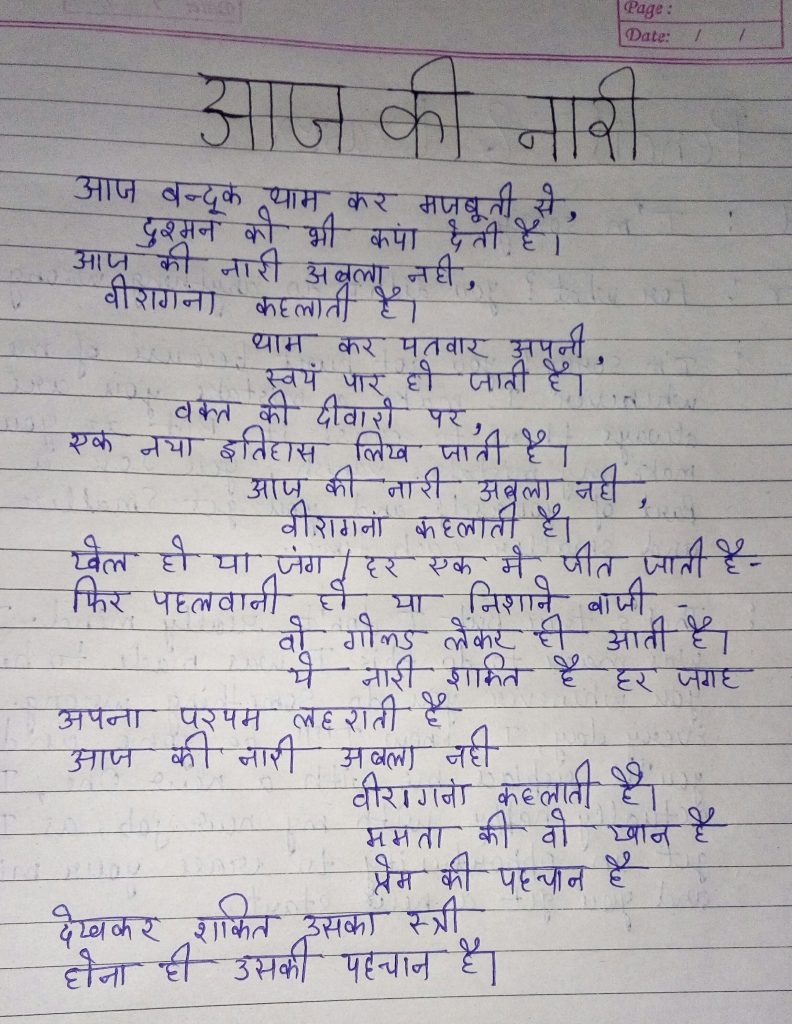 Page :
Date: / /
आज की नारी
आज बन्दूक थाम कर मजबूती से,
दुश्मन को भी कपां देती है।
आज की नारी अबला नही,
वीरांगना कहलाती है।
थाम कर पतवार अपनी,
स्वयं पार हो जाती है।
वक्त की दीवारो पर,
एक नया इतिहास लिख जाती है।
आज की नारी अबला नही,
वीरागनां कहलाती है।
खेल हो या जंग / हर एक मे जीत जाती है-
फिर पहलवानी हो या निशाने बाजी -
वो गोल्ड लेकर ही आती है।
ये नारी शक्ति है हर जगह
अपना परचम लहराती है
आज की नारी अबला नही
वीरागनां कहलाती है।
ममता की वो खान है
प्रेम की पहचान है
देखकर शक्ति उसका स्त्री
होना ही उसकी पहचान है।